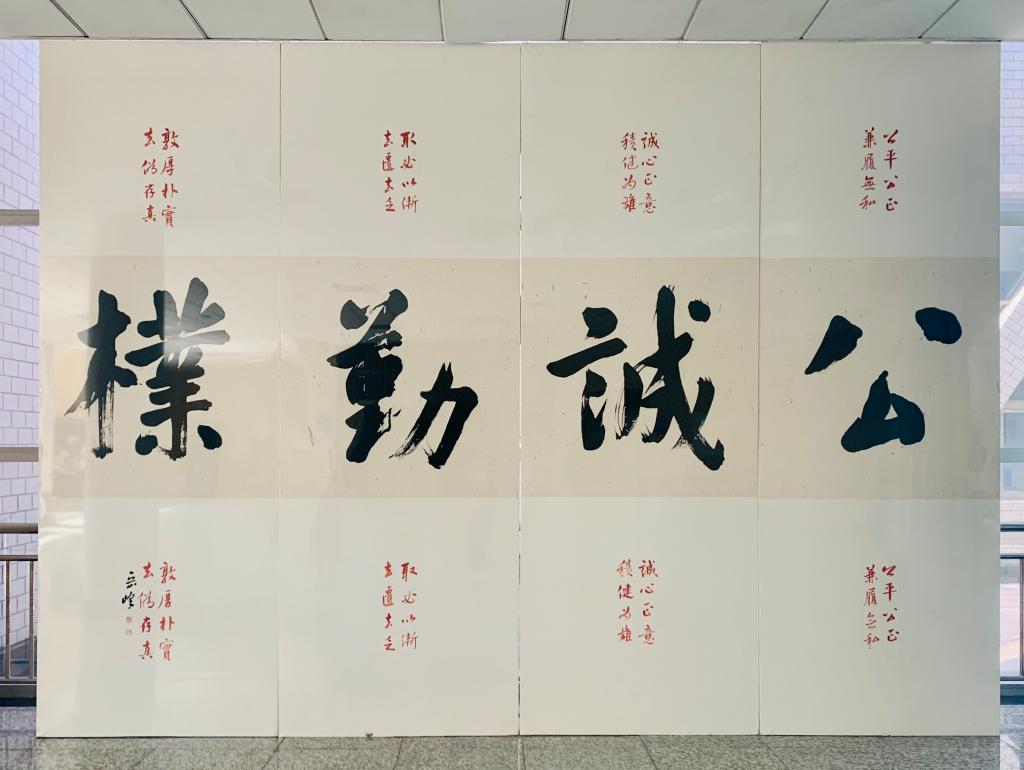 公平公正
兼履無私
誠心正意
積健为雄
取必以漸
敦厚朴實
去偽存真
公誠勤樸
公平公正
兼履無私
誠心正意
積健为雄
取必以漸
敦厚朴實
去偽存真